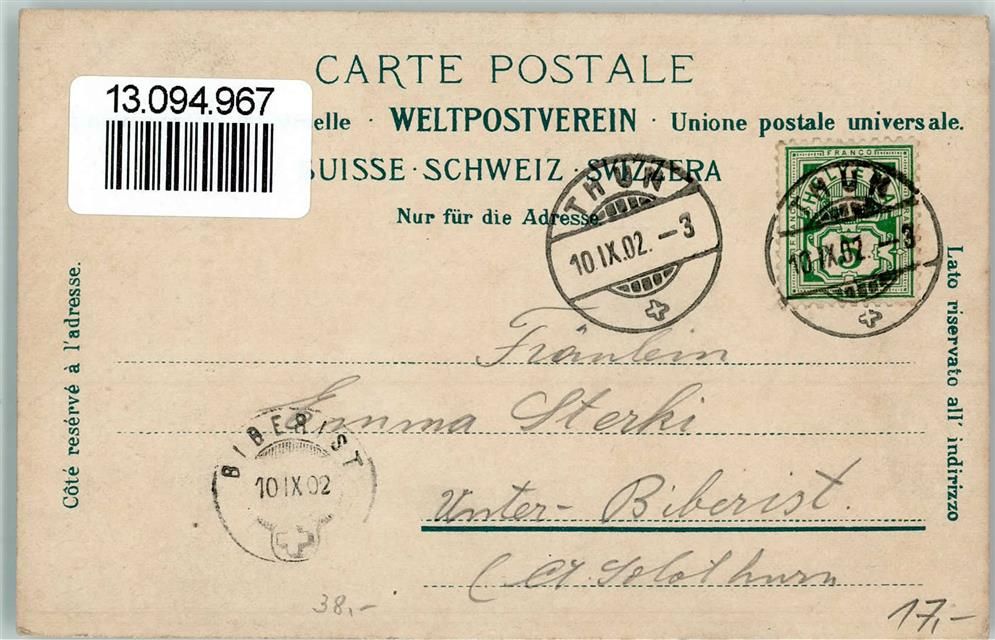 CARTE POSTALE
13.094.967
elle · WELTPOSTVEREIN · Unione postale universale.
SUISSE · SCHWEIZ · SVIZZERA
Nur für die Adresse.
FRANCO
HELVETIA
5
THUN
10.IX.02.–3
THUN
10.IX.02.–3
Côté resérvé à l'adresse.
Lato riservato all' indirizzo
Fräulein
Emma Sterki
Unter-Biberist.
(Ct. Solothurn
BIBERIST
10 IX 02
38,-
17,-